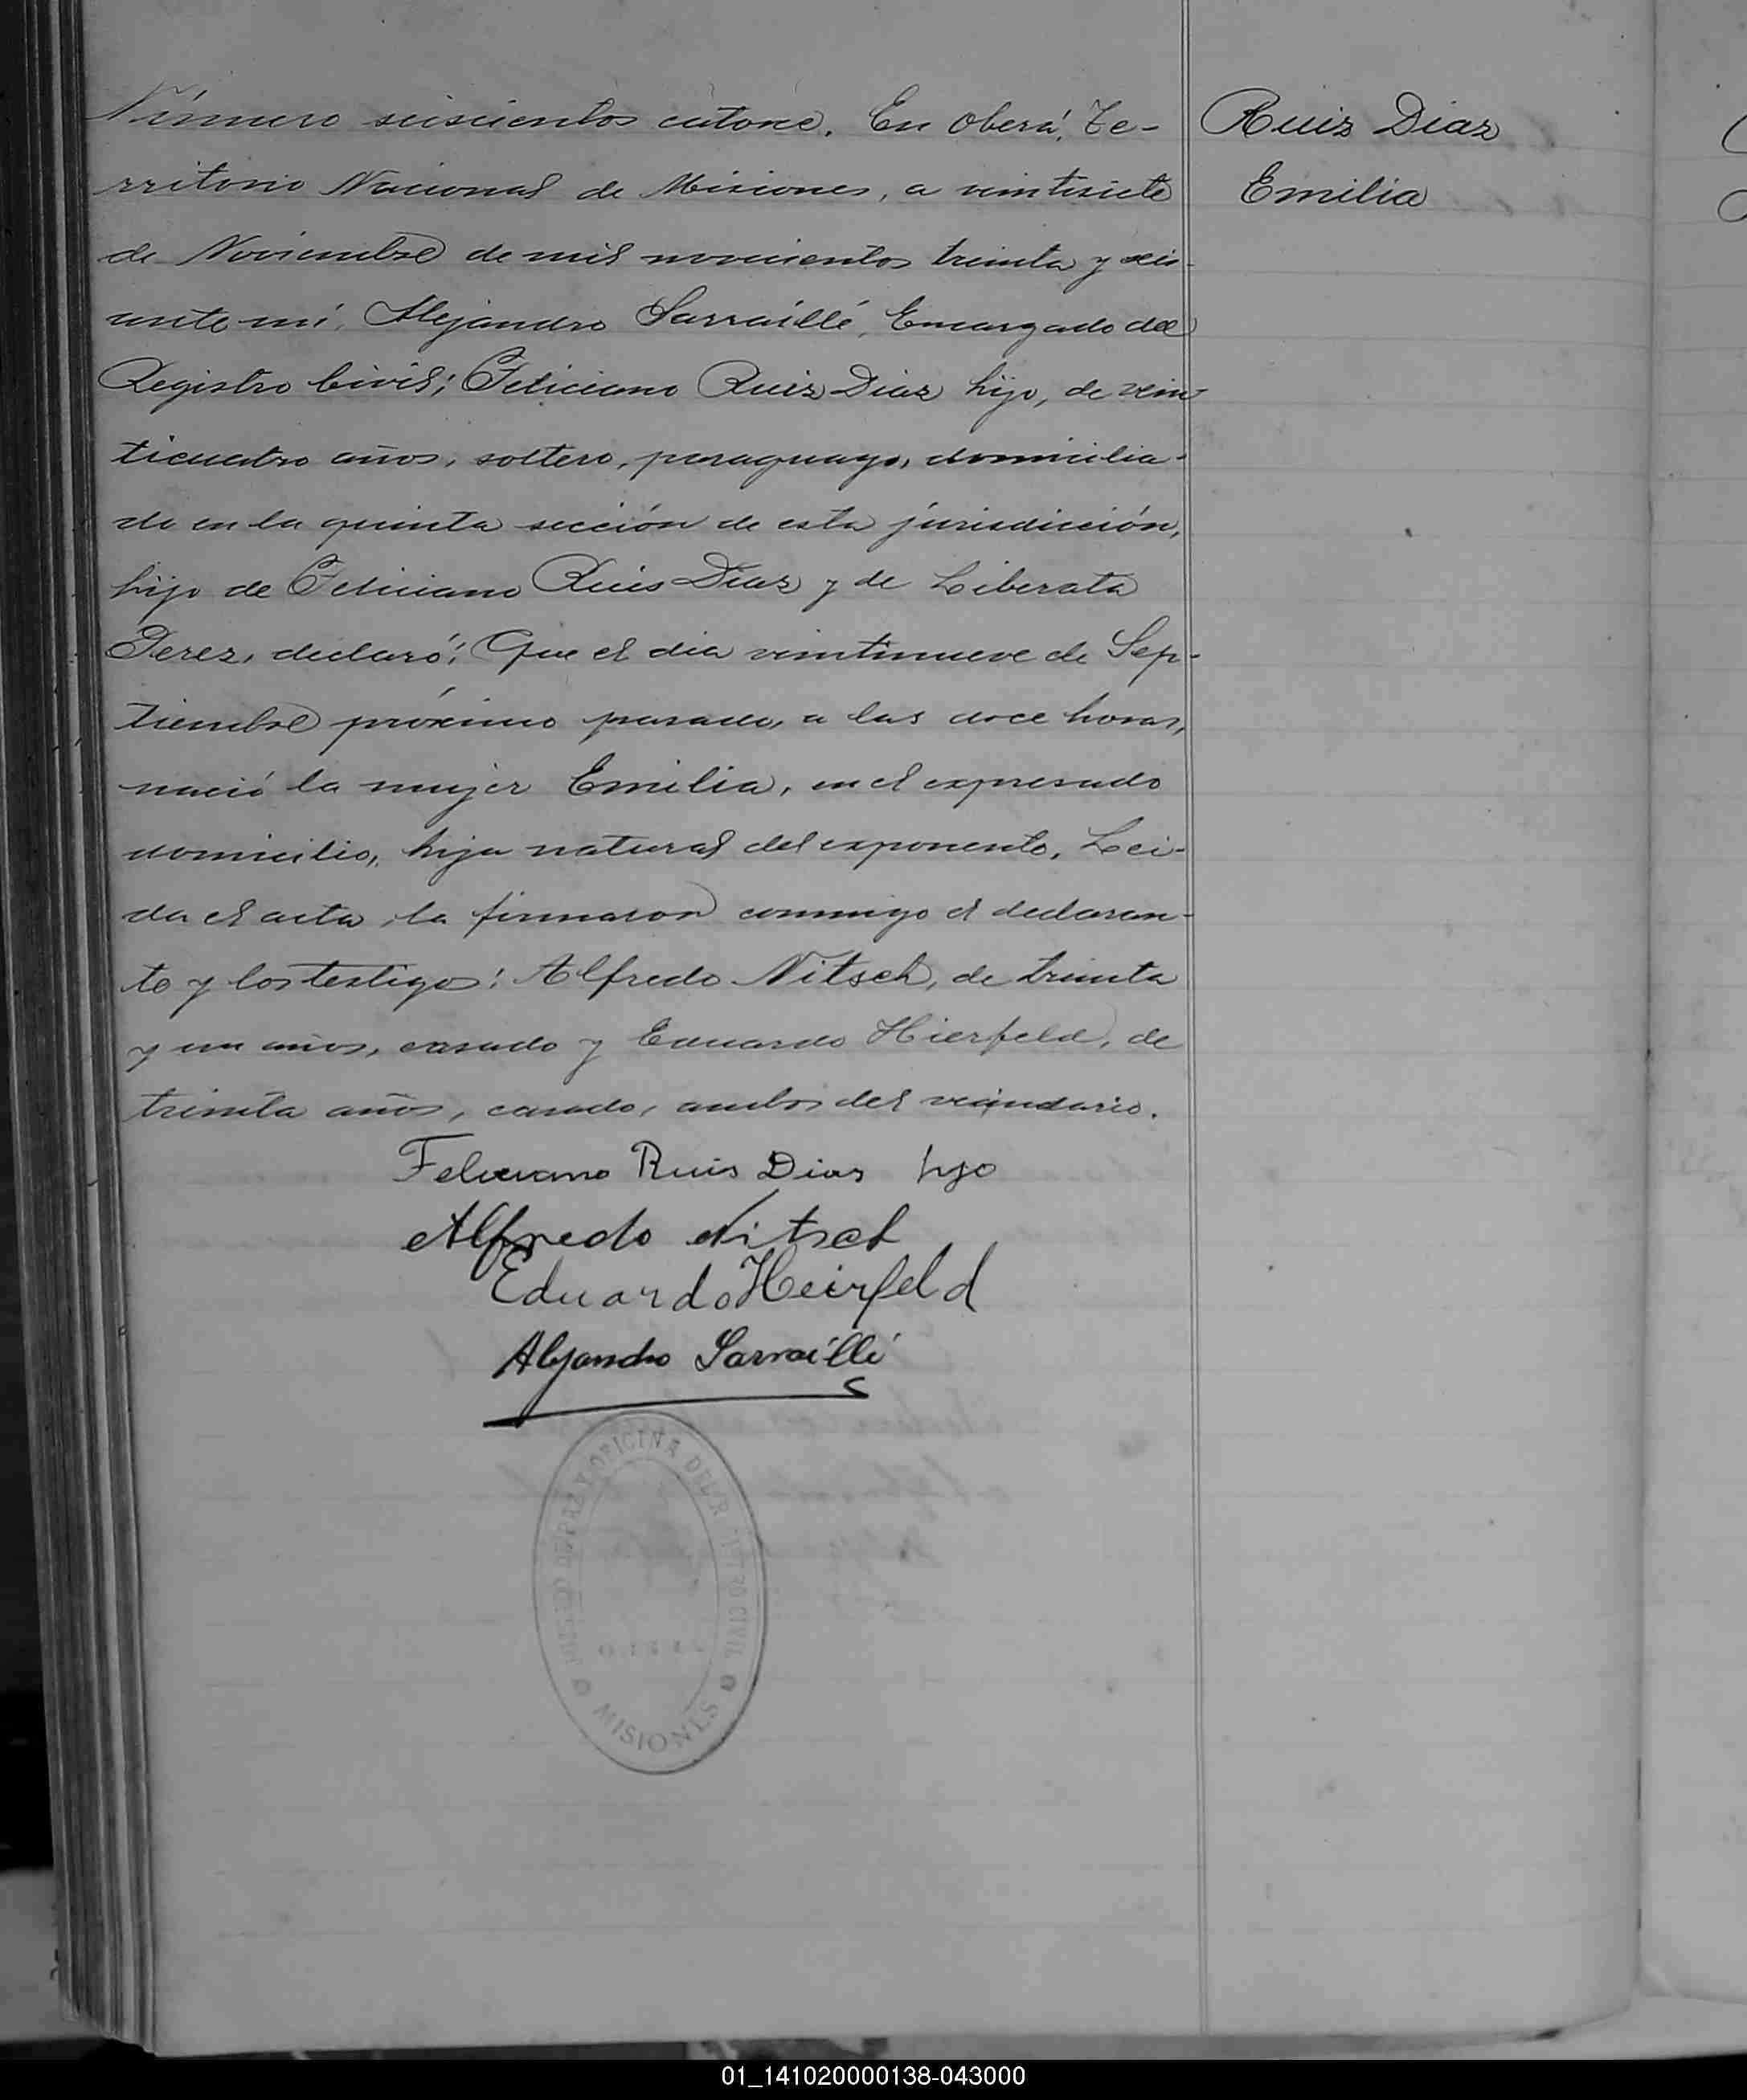 Número seiscientos catorce. En Oberá, Te-
rritorio Nacional de Misiones, a veintisiete
de Noviembre de mil novecientos treinta y seis
ante mí, Alejandro Sarraillé, Encargado del
Registro Civil; Feliciano Ruiz Diaz hijo, de vein-
ticuatro años, soltero, paraguayo, domicilia-
do en la quinta sección de esta jurisdicción,
hijo de Feliciano Ruis Diaz y de Liberata
Perez, declaró: Que el dia veintinueve de Sep-
tiembre próximo pasado, a las doce horas,
nació la mujer Emilia, en el expresado
domicilio, hija natural del exponente. Lei-
da el acta, la firmaron conmigo el declaran-
te y los testigos: Alfredo Nitsch, de treinta
y un años, casado y Eduardo Hierfeld, de
treinta años, casado, ambos del vecindario.
Feliciano Ruis Dias hijo
Alfredo Nitsch
Eduardo Heirfeld
Alejandro Sarraillé
Ruiz Diaz
Emilia
JUZGADO DE PAZ Y OFICINA DEL REGISTRO CIVIL
MISIONES
01_141020000138-043000